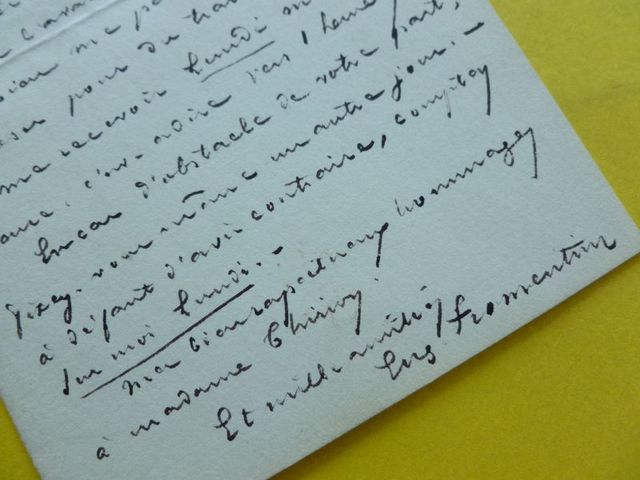 me
pour du
recevoir lundi
c'est-à-dire vers 1 heure
En cas d'obstacle de votre part,
fixez-vous même un autre jour. —
à défaut d'avis contraire, comptez
sur moi lundi. —
mes bien respectueux hommages
à madame
Et mille amitiés
Eug Fromentin